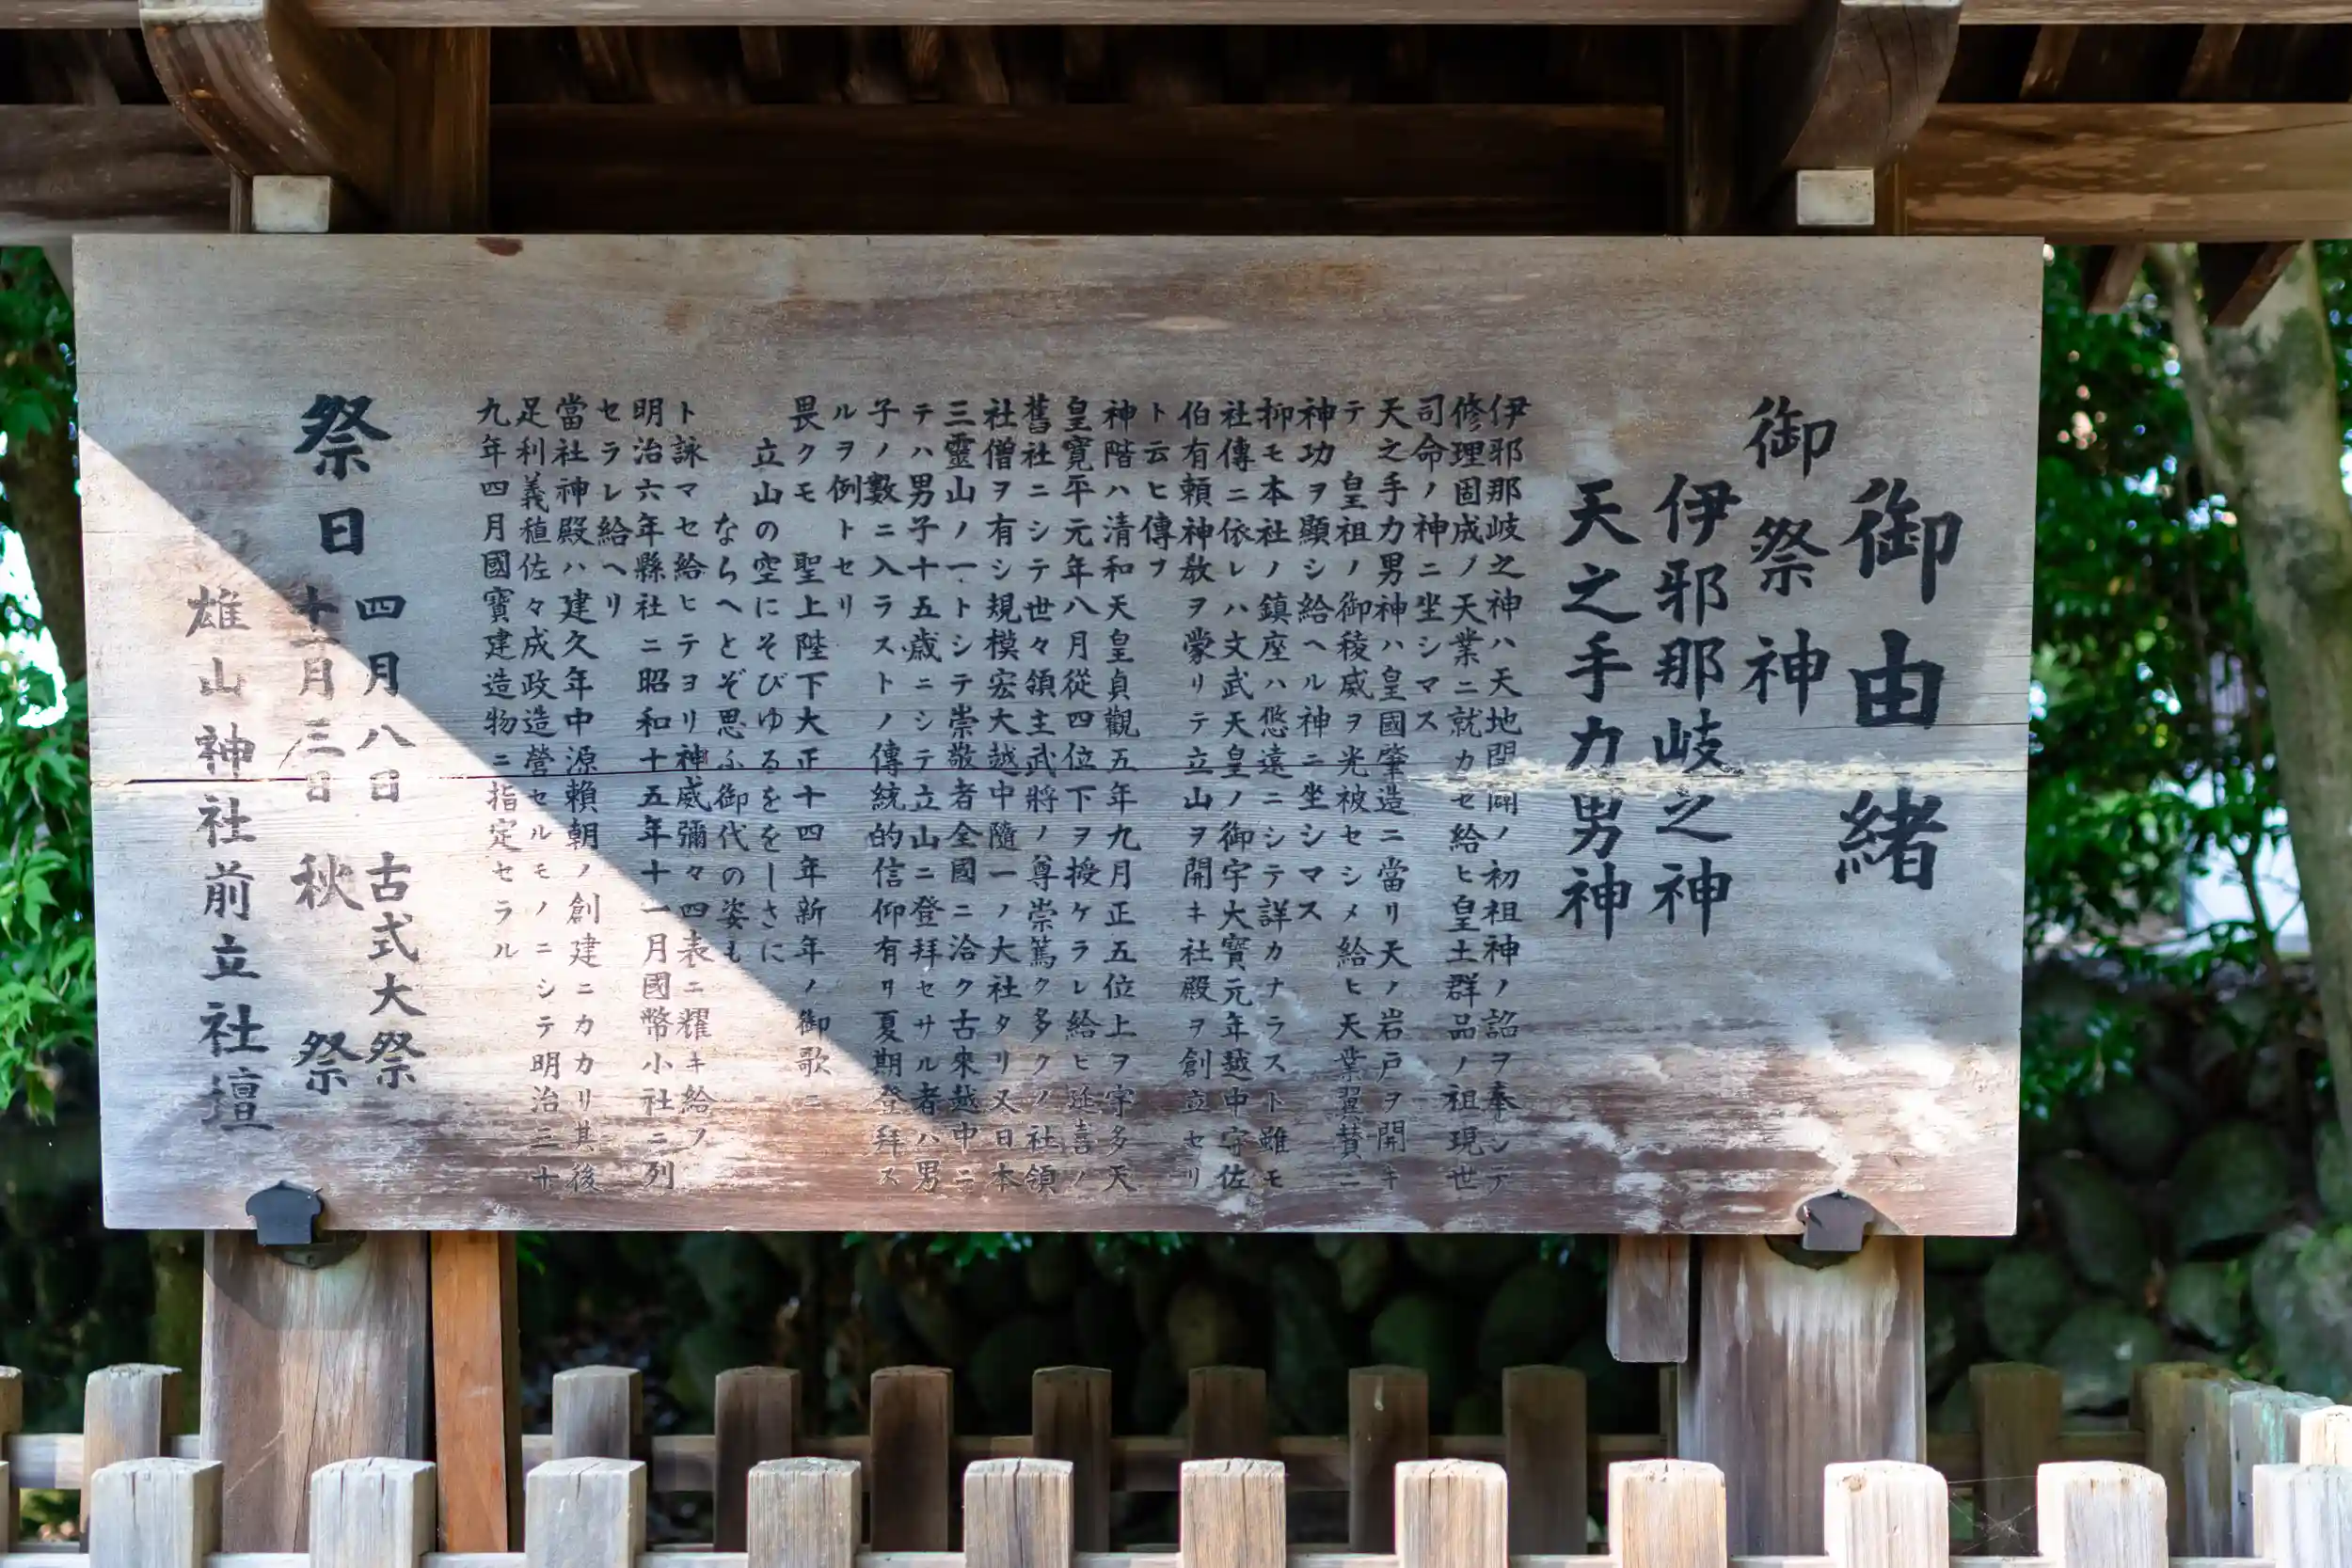 御由緒
御祭神
伊耶那岐之神
天之手力男神
伊耶那岐之神ハ天地開闢ノ初祖神ノ詔ヲ奉シテ
修理固成ノ天業ニ就カセ給ヒ皇土群品ノ祖現世
司命ノ神ニ坐シマス
天之手力男神ハ皇國肇造ニ當リ天ノ岩戸ヲ開キ
テ 皇祖ノ御稜威ヲ光被セシメ給ヒ天業翼賛ニ
神功ヲ顯シ給ヘル神ニ坐シマス
抑モ本社ノ鎮座ハ悠遠ニシテ詳カナラスト雖モ
社傳ニ依レハ文武天皇ノ御宇大寶元年越中守佐
伯有頼神敎ヲ蒙リテ立山ヲ開キ社殿ヲ創立セリ
ト云ヒ傳フ
神階ハ清和天皇貞觀五年九月正五位上ヲ宇多天
皇寛平元年八月從四位下ヲ授ケラレ給ヒ延喜ノ
舊社ニシテ世々領主武將ノ尊崇篤ク多クノ社領
社僧ヲ有シ規模宏大越中隨一ノ大社タリ又日本
三靈山ノ一トシテ崇敬者全國ニ洽ク古來越中ニ
テハ男子十五歳ニシテ立山ニ登拜セサル者ハ男
子ノ數ニ入ラストノ傳統的信仰有リ夏期登拜ス
ルヲ例トセリ
畏クモ 聖上陛下大正十四年新年ノ御歌ニ
立山の空にそびゆるををしさに
ならへとぞ思ふ御代の姿も
ト詠マセ給ヒテヨリ神威彌々四表ニ耀キ給フ
明治六年縣社ニ昭和十五年十一月國幣小社ニ列
セラレ給ヘリ
當社神殿ハ建久年中源賴朝ノ創建ニカカリ其後
足利義稙佐々成政造營セルモノニシテ明治三十
九年四月國寶建造物ニ指定セラル
祭日 四月八日 古式大祭
十一月三日 秋祭
雄山神社前立社壇